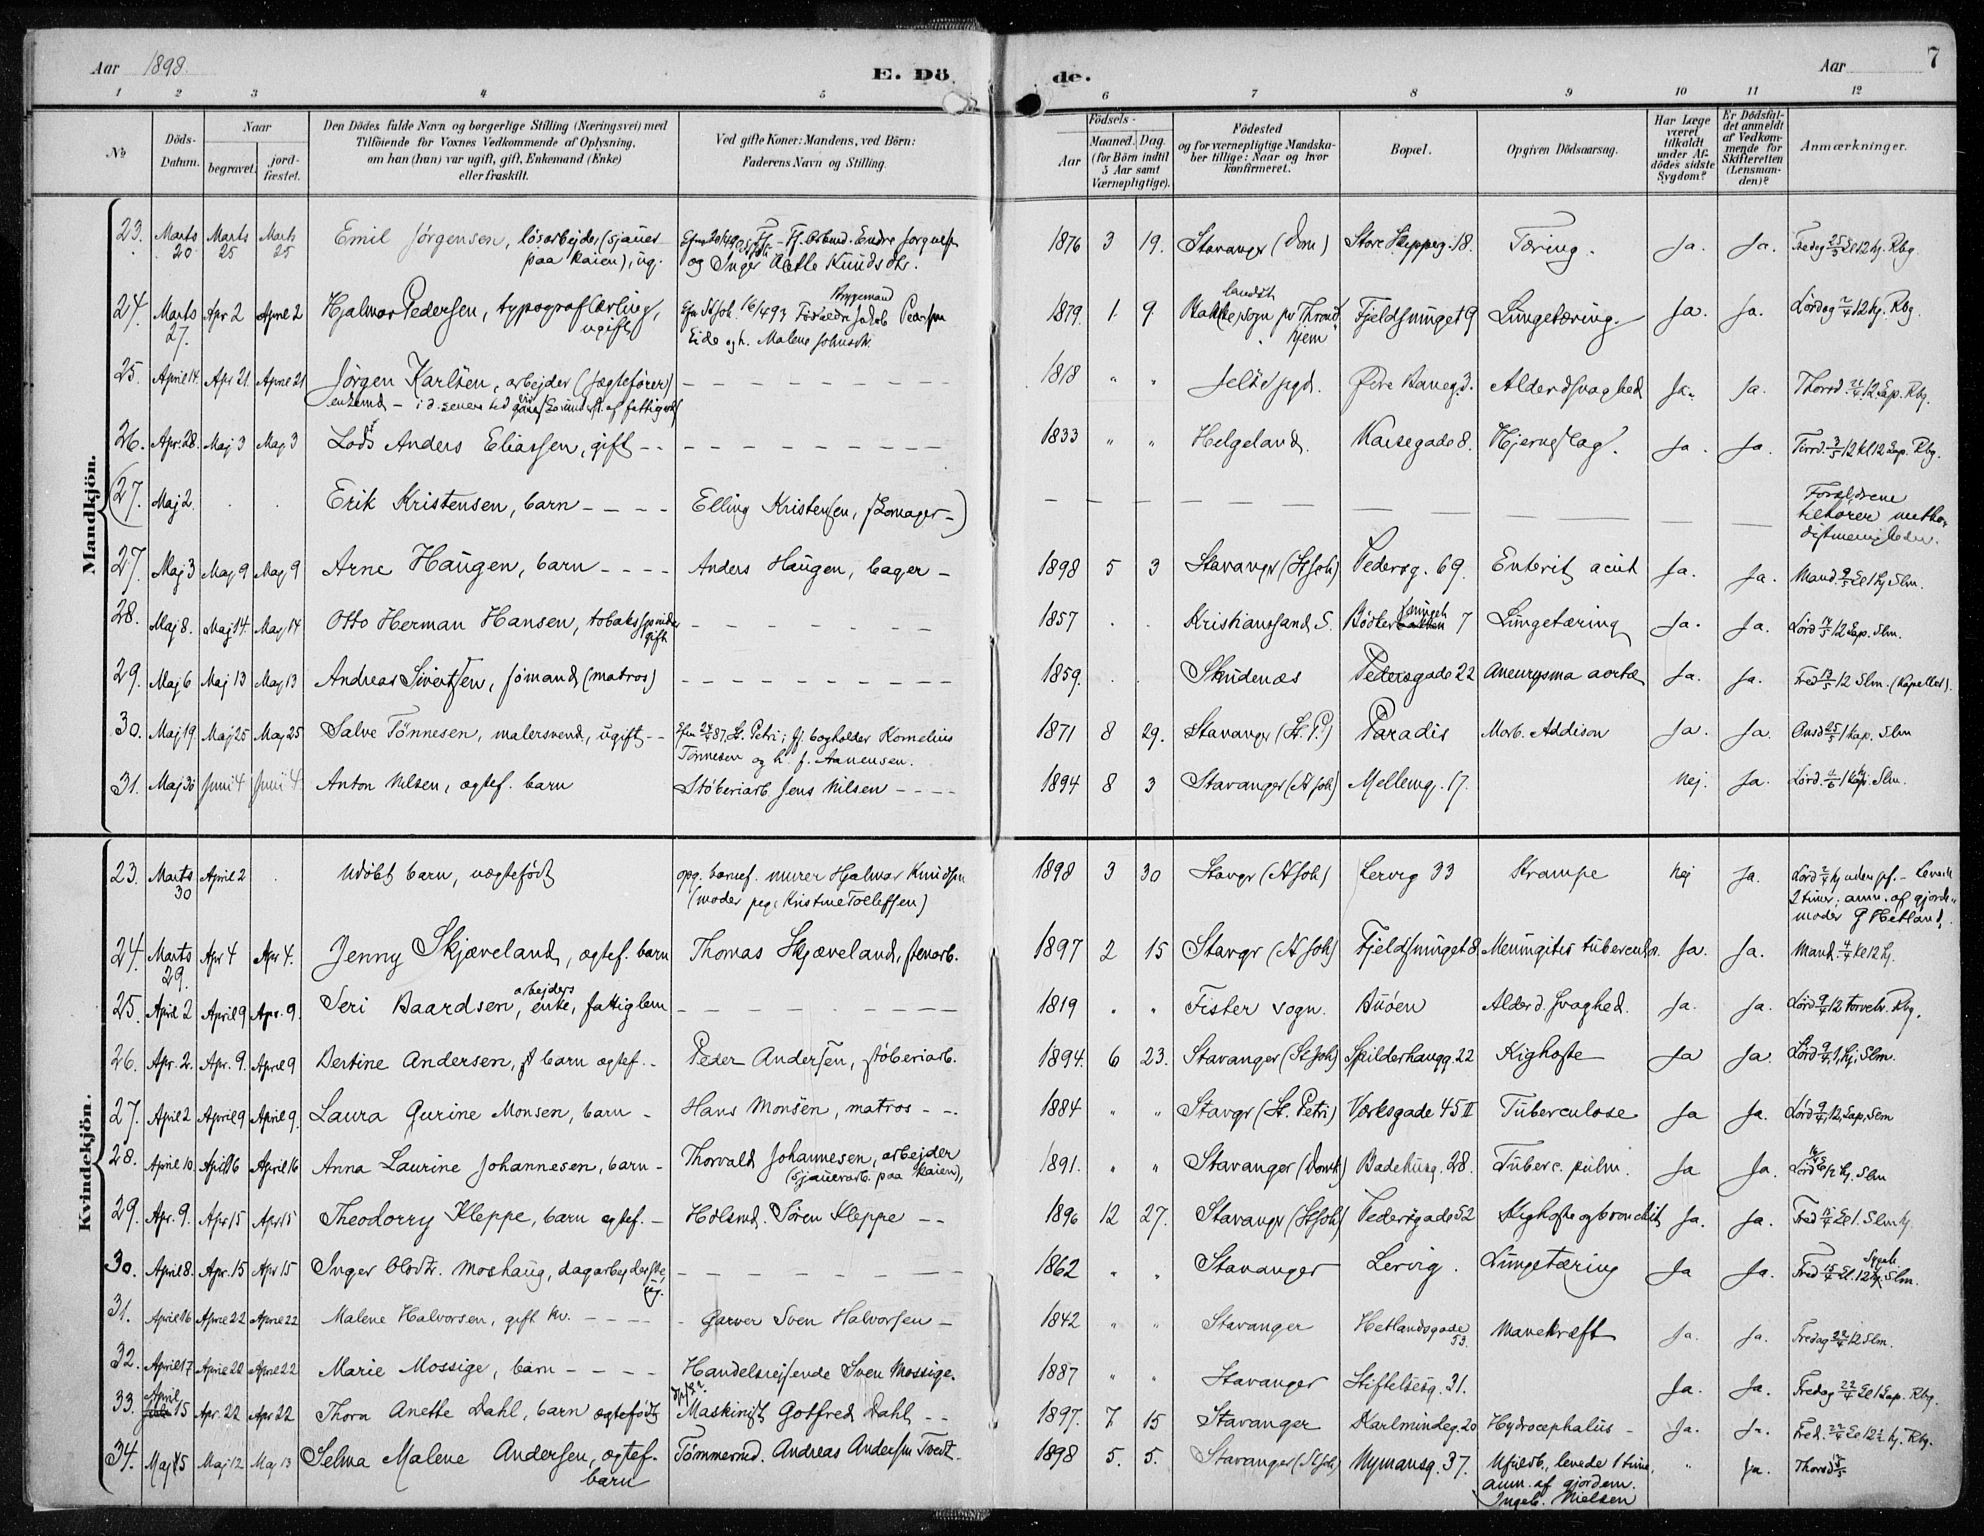 Aar 1898.
E. Dö
de.
Aar
7
1 2 3 4 5 6 7 8 9 10 11 12
No
Döds-Datum.
Naar
begravet.
jordfæstet.
Den Dödes fulde Navn og borgerlige Stilling (Næringsvei) med
Tilföiende for Voxnes Vedkommende af Oplysning,
om han (hun) var ugift, gift, Enkemand (Enke)
eller fraskilt.
Ved gifte Koner: Mandens, ved Börn:
Faderens Navn og Stilling.
Födsels-
Aar
Maaned. Dag.
(for Börn indtil
5 Aar samt
Værnepligtige).
Födested
og for værnepligtige Mandskaber tillige: Naar og hvor
konfirmeret.
Bopæl.
Opgiven Dödsaarsag.
Har Læge
været
tilkaldt
under Afdödes sidste
Sygdom?
Er Dödsfaldet anmeldt
af Vedkommende for
Skifteretten
(Lensmanden)?
Anmærkninger.
Mandkjön.
23. Marts 20 Marts 25 Marts 25 Emil Jørgensen, løsarbejder (sjauer paa kaien), ug. og Inger Knudsdtr. 1876 3 19. Stavanger (Dom) Store Skipperg. 18. Tæring. Ja. Ja.
24. Marts 27. Apr 2 April 2 Hjalmar Pedersen, typograflærling, ugift Eide og h. Malene 1879. 1 9. Fjeldsmuget 9 Lungetæring. Ja. Ja. Lördag 2/4 12 kj. Rbg.
25. April 14. Apr 21. April 21 Jörgen Karlsen, arbejder (jægtefører) enkemd 1818 " " Övre Baneg. 3. Alderdsvaghed Ja. Ja. Thorsd. 21/4 12 Kap. Rbg.
26. Apr. 28. Maj 3 Maj 3 Lods Anders Eliassen, gift 1833 " " Helgeland. Karsegade 8. Hjerneslag. Ja. Ja.
(27. Maj 2. Erik Kristensen, barn Elling Kristensen, skomager) Forældrene tilhører methodistmenigheden.
27. Maj 3 Maj 9 Maj 9 Arne Haugen, barn Anders Haugen, bager 1898 5 3 Stavanger (St Joh) Pedersg. 69. Enterit acut Ja. Ja. Mand. 9/5 kl 1 kj Slm.
28. Maj 8. Maj 14. Maj 14 Otto Herman Hansen, tobaksspinder gift 1857 Kristianssand S. Bødker 7 Lungetæring Ja. Ja. Lörd 14/5 12 Kap. Slm.
29. Maj 6 Maj 13 Maj 13 Andreas Sivertsen, sömand (matros) 1859. Skudenæs Pedersgade 22 Aneurysma aortæ Ja. Ja. Fred 13/5 12 Slm. (Kapellet).
30. Maj 19 Maj 25 Maj 25 Salve Tönnesen, malersvend, ugift St. Petri; bogholder Kornelius Tönnesen og h. f. Aanensen. 1871 8 29. Stavanger (St. P.) Paradis Morb. Addison Ja. Ja Onsd 25/5 1 kap. Slm
31. Maj 30 Juni 4 Juni 4 Anton Nilsen, ægtef. barn Støberiarb Jens Nilsen 1894 8 3 Stavanger (St Joh) Mellemg. 17. Nej. Ja. Lørd. 4/6 1 Slm.
Kvindekjön.
23. Marts 30 April 2 Udöbt barn, uægtefödt opg. barnef. murer Hjalmar Knudsen (moder pige Kristine Tollefsen) 1898 3 30 Stavgr (St Joh) Lervig 33 Krampe Nej Ja. Lörd 2/4 kj uden pf. – levede 2 timer; anm. af gjordemoder G Hetland.
24. Marts 29. Apr 4 Apr 4. Jenny Skjæveland, ægtef. barn Thomas Skjæveland, stenarb. 1897 2 15 Stavgr (St Joh) Fjeldsmuget 8 Meningitis tuberculos. Ja. Ja. Mand. 4/4 kl 12 kj.
25. April 2 April 9 Apr. 9. Seri Baardsen, arbejders enke, fattiglem 1819 " " Fister sogn. Buöen Alderd. svaghed. Ja. Ja. Lörd 9/4 12 Rbg.
26. Apr. 2. Apr. 9. April 9 Bertine Andersen, barn ægtef. Peder Andersen, støberiarb. 1894. 6 23. Stavanger (St Joh) Spilderhaugg. 22 Kighoste Ja Ja. Lörd 9/4 1, kj. Slm.
27. April 2 April 9 April 9. Laura Gurine Monsen, barn Hans Monsen, matros 1884 " " Stavgr (St. Petri) Verksgade 45 II Tuberculose Ja Ja. Lörd 9/4, 12, Kap, Slm
28. April 10 April 16 April 16 Anna Laurine Johannesen, barn Thorvald Johannesen, arbejder (sjauerarb. paa kaien), 1891. " " Stavanger (Domk) Badehusg. 28. Tuberc. pulm. Ja Ja.
29. Apr. 9. Apr 15 Apr 15 Theodorry Kleppe, barn ægtef. Søren Kleppe 1896 12 27. Stavanger (St Joh) Pedersgade 52 Kighoste og bronchit Ja. Ja. Fred 15/4 kl 1. Slm kj.
30. April 8. Apr. 15 Apr 15 Inger Olsdtr. Moshaug, dagarbejderske, ug. 1862 " " Stavanger Lervig. Lungetæring Ja Ja. Fred 15/4 kl. 12 Slm.
31. April 16 April 22 April 22 Malene Halvorsen, gift kv. Garver Sven Halvorsen 1842 " " Stavanger Hetlandsgade 53. Mavekræft Ja. Ja. Fredag 22/4 12 Slm.
32. April 17 April 22 April 22 Marie Mossige, barn Handelsrejsende Sven Mossige. 1887 " " Stavanger Stiftelsesg. 31. Ja. Ja. Fredag 22/4 kl 1 Kap. Rbg.
33. April 15 Apr. 22 Apr 22 Thora Anette Dahl, barn ægtefödt Maskinist Gotfred Dahl 1897. 7 15 Stavanger Karlmindeg. 20 Hydrocephalus Ja. Ja. Fred. 22/4 kl 12½ kj. Rbg.
34. Maj 5 Maj 12 Maj 13 Selma Malene Andersen, ægtef. barn Tømmermd. Andreas Andersen Tvedt. 1898 5. 5. Stavanger (St Joh) Nymansg. 37. Ufuldb., levede 1 time, anm. af gjordem. Ingeb. Nielsen " Ja. Thorsd 12/5